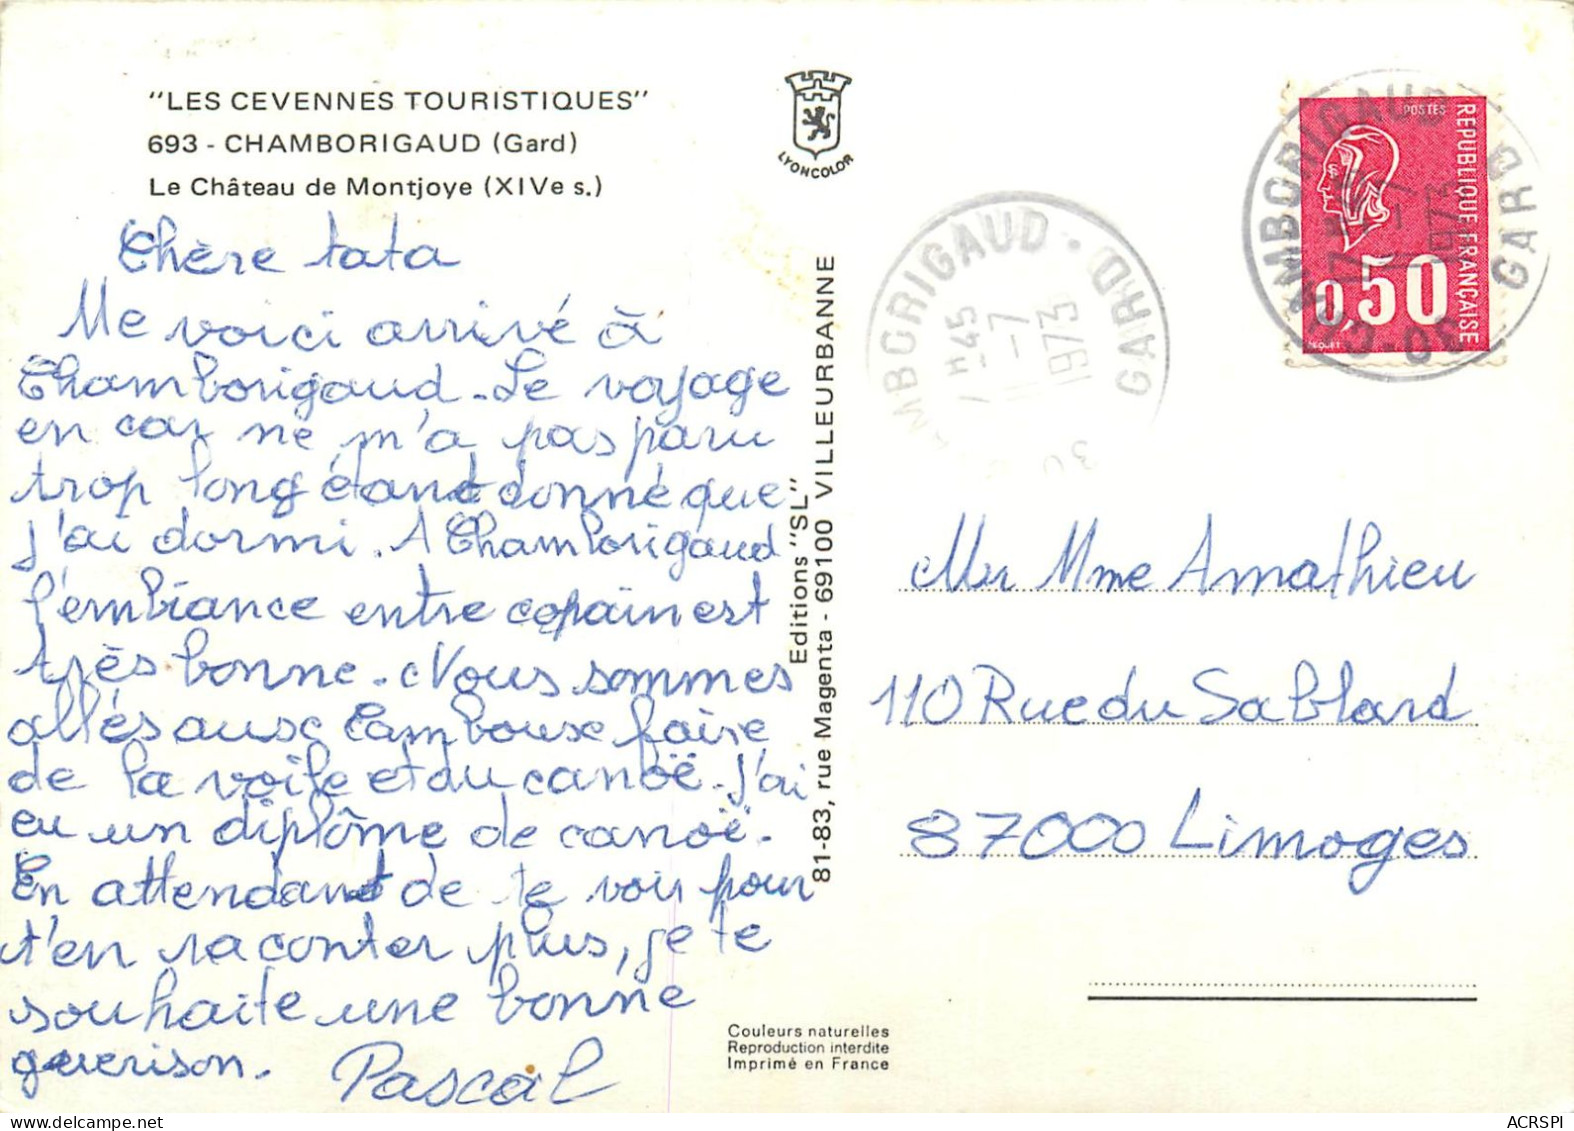 "LES CEVENNES TOURISTIQUES"
693 - CHAMBORIGAUD (Gard)
Le Château de Montjoye (XIVe s.)
Chère tata
Me voici arrivé à
Chamborigaud. Le voyage
en car ne m'a pas paru
trop long étant donné que
j'ai dormi. A Chamborigaud
l'embiance entre copain est
très bonne. Nous sommes
allés aux Cambouse faire
de la voile et du canoë. J'ai
eu un diplôme de canoë.
En attendant de te voir pour
t'en raconter plus, je te
souhaite une bonne
guerison. Pascal
LYONCOLOR
Editions "SL"
81-83, rue Magenta - 69100 VILLEURBANNE
Couleurs naturelles
Reproduction interdite
Imprimé en France
AMBORIGAUD · GARD
7H45
11-7
1973
30
POSTES
REPUBLIQUE FRANÇAISE
0,50
AMBORIGAUD GARD
17
1973
30
Mr Mme Amathieu
110 Rue du Sablard
87000 Limoges
ACRSPI